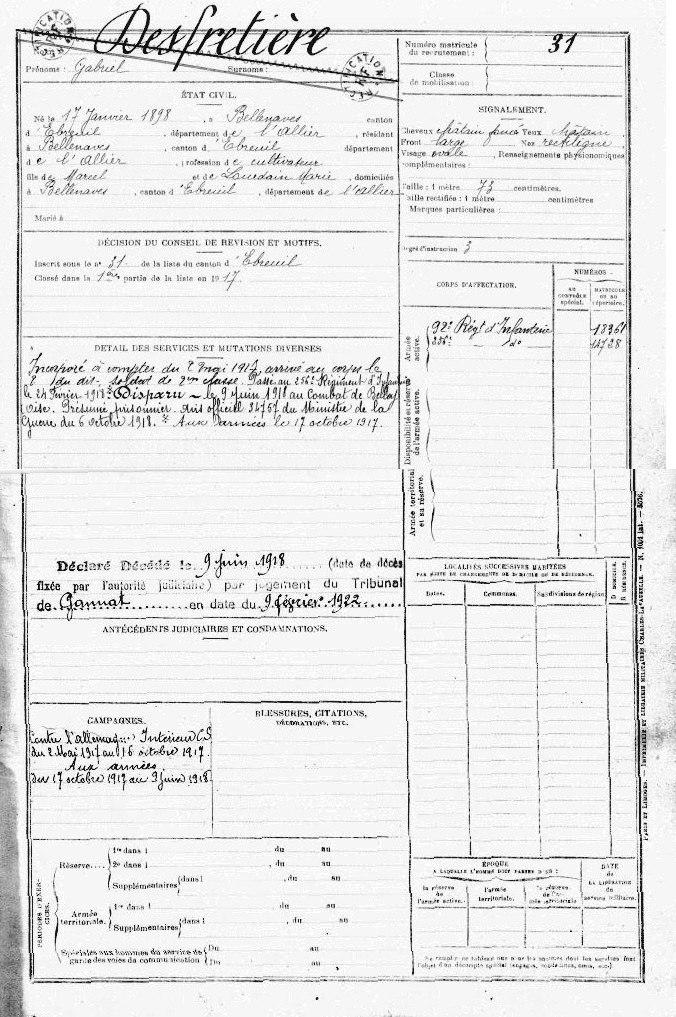 Desfretière
Numéro matricule
du recrutement : 31
Prénoms : Gabriel Surnoms :
Classe
de mobilisation :
ÉTAT CIVIL.
Né le 17 Janvier 1898, à Bellenaves canton
d'Ebreuil, département de l'Allier, résidant
à Bellenaves, canton d'Ebreuil département
de l'Allier, profession de cultivateur
fils de Marcel et de Lourdain Marie, domiciliés
à Bellenaves, canton d'Ebreuil, département de l'Allier
Marié à
SIGNALEMENT.
Cheveux châtain foncé Yeux châtain
Front large Nez rectiligne
Visage ovale, Renseignements physionomiques
complémentaires :
Taille : 1 mètre 73 centimètres.
Taille rectifiée : 1 mètre centimètres
Marques particulières :
Degré d'instruction 3
DÉCISION DU CONSEIL DE REVISION ET MOTIFS.
Inscrit sous le n° 31 de la liste du canton d'Ebreuil
Classé dans la 1ère partie de la liste en 1917
CORPS D'AFFECTATION.
NUMÉROS
AU
CONTRÔLE
spécial.
MATRICULE
ou au
répertoire.
Armée
active.
92e Régt d'Infanterie
256e do 14728
Disponibilité et réserve
de l'armée active.
Armée territoriale
et sa réserve.
DÉTAIL DES SERVICES ET MUTATIONS DIVERSES
Incorporé à compter du 2 mai 1917, arrivé au corps le
2 du dit, soldat de 2me classe. Passé au 256e Régiment d'Infanterie
le 24 Février 1918. Disparu le 9 juin 1918 au Combat de
Oise. Présumé prisonnier. Avis officiel 34767 du Ministre de la
Guerre du 6 octobre 1918. Aux armées le 17 octobre 1917.
Déclaré Décédé le 9 juin 1918 (date de décès
fixée par l'autorité judiciaire) par jugement du Tribunal
de Gannat en date du 9 février 1922
ANTÉCÉDENTS JUDICIAIRES ET CONDAMNATIONS.
LOCALITÉS SUCCESSIVES HABITÉES
PAR SUITE DE CHANGEMENTS DE DOMICILE OU DE RÉSIDENCE.
Dates. Communes. Subdivisions de région.
D DOMICILE.
R RÉSIDENCE.
CAMPAGNES.
Contre l'Allemagne Intérieur CS
du 2 Mai 1917 au 16 octobre 1917
Aux armées
du 17 octobre 1917 au 9 juin 1918
BLESSURES, CITATIONS,
DÉCORATIONS, ETC.
PÉRIODES D'EXERCICES.
Réserve....
1re dans l , du au
2e dans l , du au
Supplémentaires (dans l , du au
Armée
territoriale.
1re dans l , du au
Supplémentaires (dans l , du au
Spéciales aux hommes du service de
garde des voies de communication
Du au
Du au
ÉPOQUE
A LAQUELLE L'HOMME DOIT PASSER DANS :
la réserve
de l'armée active.
l'armée
territoriale.
la réserve
de l'armée
territoriale
DATE
de
LA LIBÉRATION
du
service militaire.
PARIS ET LIMOGES. — IMPRIMERIE ET LIBRAIRIE MILITAIRES CHARLES-LAVAUZELLE.